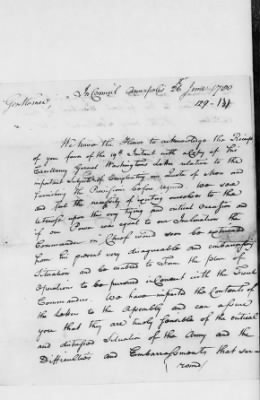 In Council Annapolis 26 June 1780
129-131
Gentlemen,
We have the Honor to acknowledge the Receipt
of your favor of the 19th Instant with a Copy of his
Excellency General Washington's Letter relative to the
important subject of Completing our Quota of Men and
furnishing the Provisions before required. We see
and feel the necessity of exerting ourselves to the
utmost upon the very trying and critical Occasion and
if our Power was equal to our Inclination the
Commander in Chief would soon be extricated
from his present very disagreeable and embarrassing
Situation and be enabled to form the plan of
Operation to be pursued in Concert with the French
Commanders. We have imparted the Contents of
the Letter to the Assembly and can assure
you that they are truly sensible of the critical
and distressed Situation of the Army and the
Difficulties and Embarrassments that sur-
round